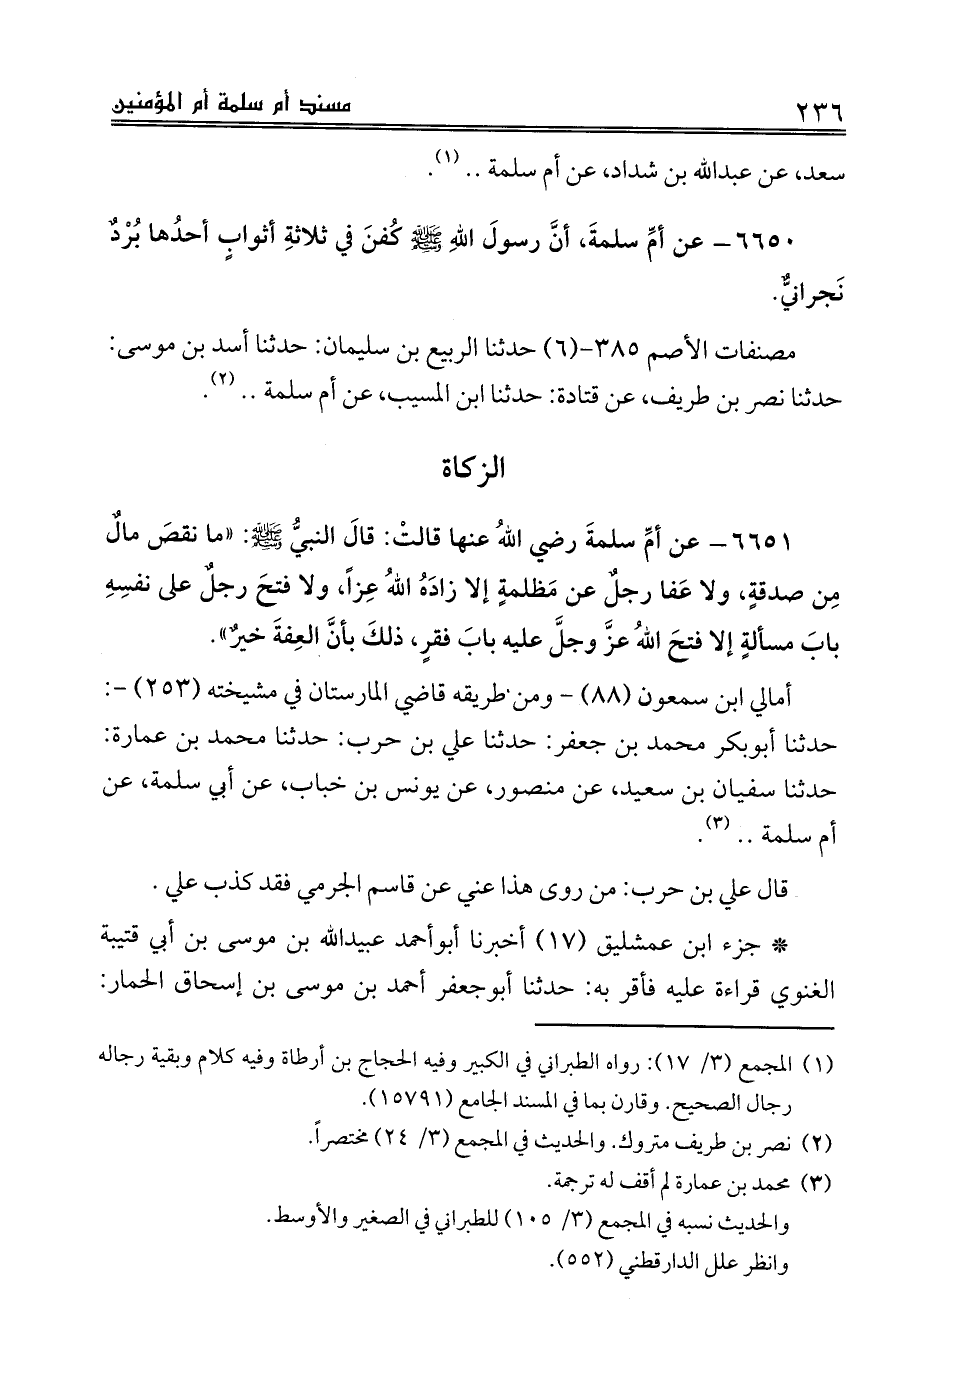 ٢٣٦ مسند أم سلمة أم المؤمنين
سعد، عن عبدالله بن شداد، عن أم سلمة .. (١).
٦٦٥٠ – عن أمِّ سلمةَ، أنَّ رسولَ اللهِ ﷺ كُفنَ في ثلاثةِ أثوابٍ أحدُها بُرْدٌ
نَجرانيٌّ.
مصنفات الأصم ٣٨٥-(٦) حدثنا الربيع بن سليمان: حدثنا أسد بن موسى:
حدثنا نصر بن طريف، عن قتادة: حدثنا ابن المسيب، عن أم سلمة .. (٢).
الزكاة
٦٦٥١ – عن أمِّ سلمةَ رضي اللهُ عنها قالتْ: قالَ النبيُّ ﷺ: «ما نقصَ مالٌ
مِن صدقةٍ، ولا عَفا رجلٌ عن مَظلمةٍ إلا زادَهُ اللهُ عِزاً، ولا فتحَ رجلٌ على نفسِهِ
بابَ مسألةٍ إلا فتحَ اللهُ عزَّ وجلَّ عليه بابَ فقرٍ، ذلكَ بأنَّ العِفةَ خيرٌ».
أمالي ابن سمعون (٨٨) – ومن طريقه قاضي المارستان في مشيخته (٢٥٣) –:
حدثنا أبوبكر محمد بن جعفر: حدثنا علي بن حرب: حدثنا محمد بن عمارة:
حدثنا سفيان بن سعيد، عن منصور، عن يونس بن خباب، عن أبي سلمة، عن
أم سلمة .. (٣).
قال علي بن حرب: من روى هذا عني عن قاسم الجرمي فقد كذب علي.
* جزء ابن عمشليق (١٧) أخبرنا أبوأحمد عبيدالله بن موسى بن أبي قتيبة
الغنوي قراءة عليه فأقر به: حدثنا أبوجعفر أحمد بن موسى بن إسحاق الحمار:
(١) المجمع (٣/ ١٧): رواه الطبراني في الكبير وفيه الحجاج بن أرطاة وفيه كلام وبقية رجاله
رجال الصحيح. وقارن بما في المسند الجامع (١٥٧٩١).
(٢) نصر بن طريف متروك. والحديث في المجمع (٣/ ٢٤) مختصراً.
(٣) محمد بن عمارة لم أقف له ترجمة.
والحديث نسبه في المجمع (٣/ ١٠٥) للطبراني في الصغير والأوسط.
وانظر علل الدارقطني (٥٥٢).